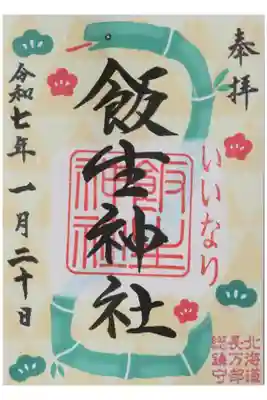 奉拝
いいなり
飯生神社
飯生神社
令和七年 一月二十日
北海道
長万部
鎮守